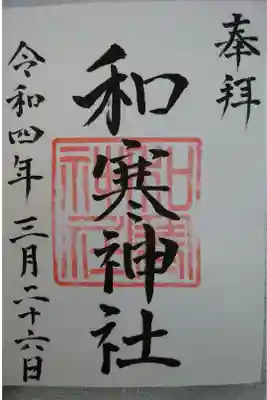 奉拝
和寒神社
令和四年三月二十六日